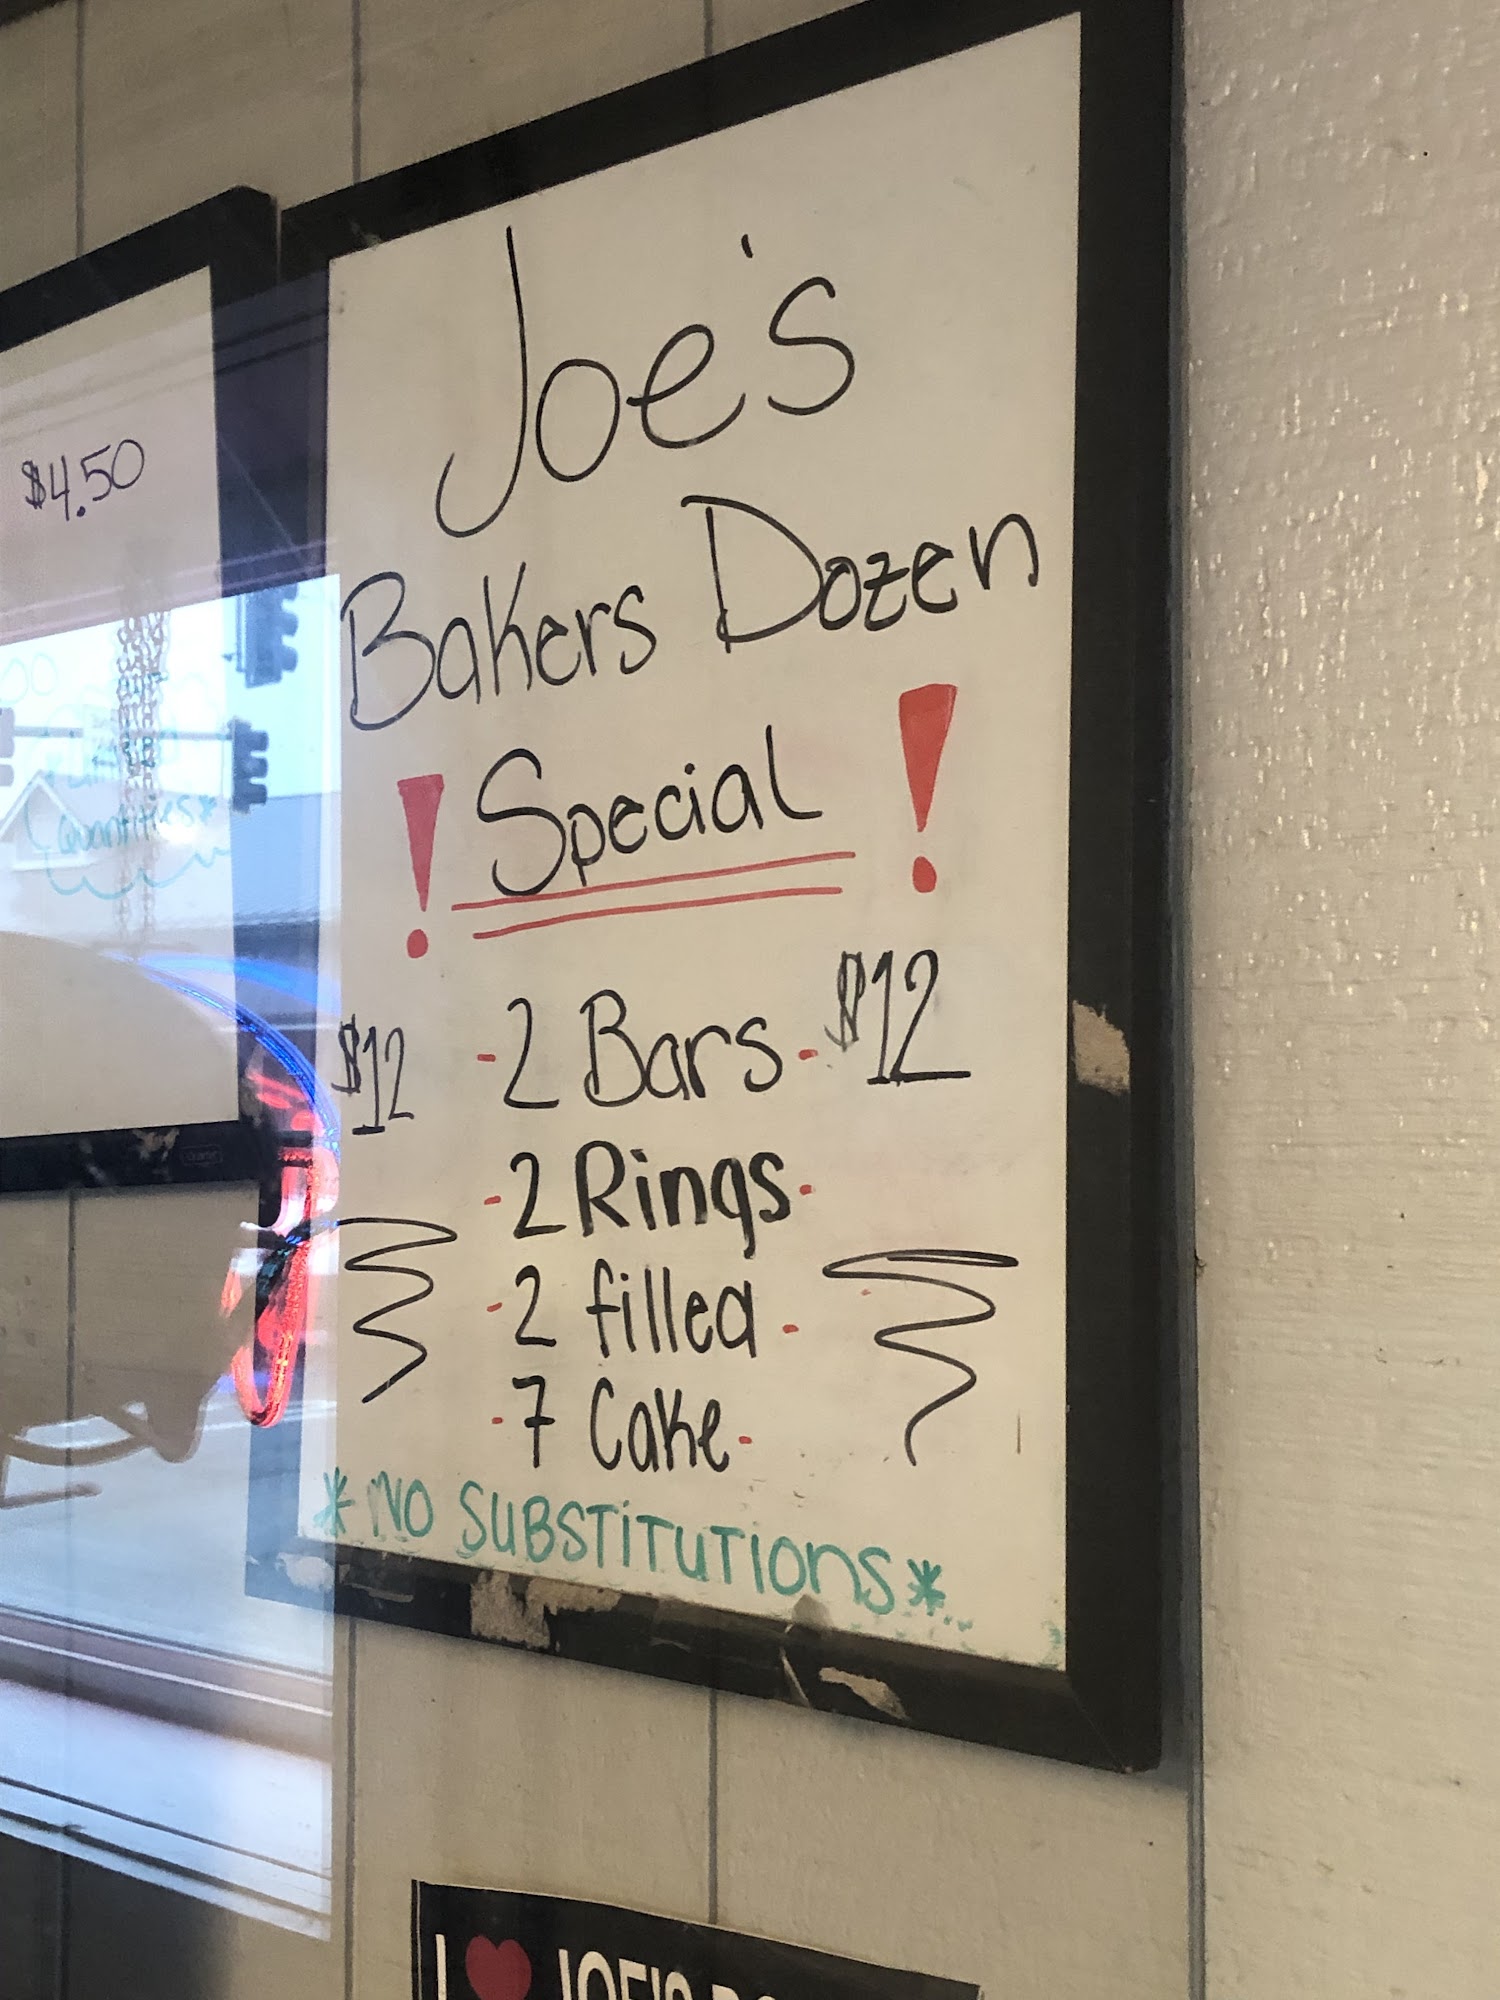 $4.50
Quantities*
Joe's
Bakers Dozen
! Special !
$12 -2 Bars- $12
-2 Rings-
-2 filled-
-7 Cake-
*NO SUBSTITUTIONS*
I ❤ JOE'S